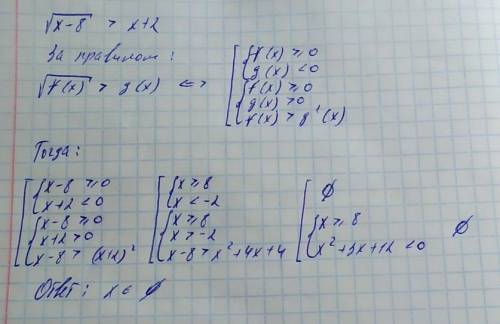 √x-8 > x+2
За правилом: [ { f(x) ≥ 0
g(x) < 0
√f(x) > g(x) <=> { f(x) ≥ 0
g(x) > 0
f(x) > g²(x)
Тогда:
[ { x-8 ≥ 0 [ { x ≥ 8 [ ∅
x+2 < 0 x < -2
{ x-8 ≥ 0 { x ≥ 8 { x ≥ 8
x+2 > 0 x > -2 ∅
x-8 > (x+2)² x-8 > x²+4x+4 x²+3x+12 < 0
Ответ: x ∈ ∅